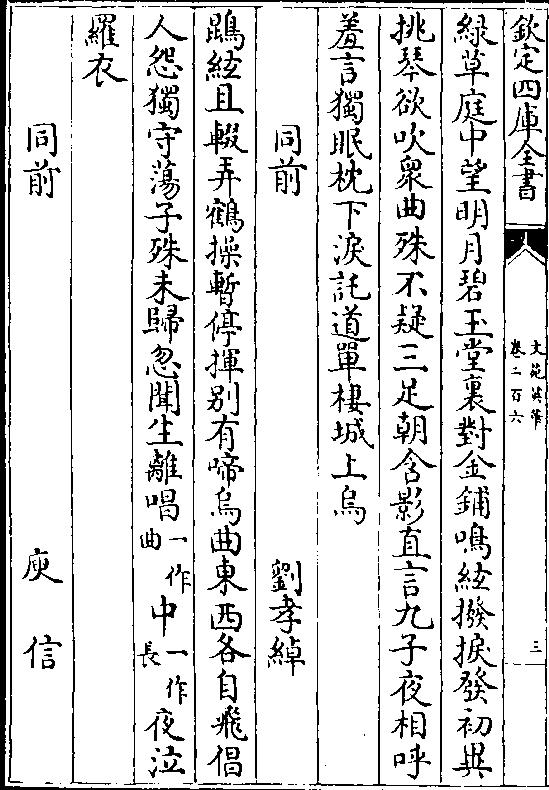 欽定四庫全書
文苑英華
卷二百六
三
綠草庭中望明月碧玉堂裏對金鋪鳴絃撥捩發初異
挑琴欲吹衆曲殊不疑三足朝含影直言九子夜相呼
羞言獨眠枕下淚託道單棲城上烏
同前 劉孝綽
鵾絃且輟弄鶴操暫停揮别有啼烏曲東西各自飛倡
人怨獨守蕩子殊未歸忽聞生離唱一作曲中一作長夜泣
羅衣
同前 庾信